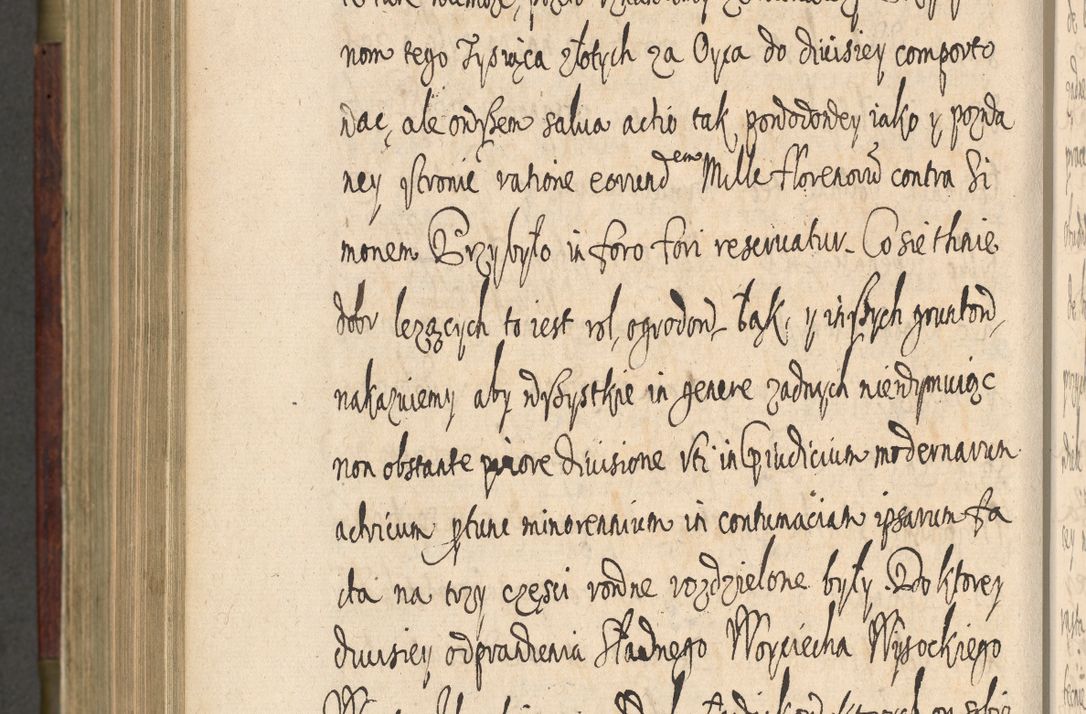 nom tego Tysiąca złotych za Oyca do diuisiey comporto
wac, ale owszem salua actio tak powodowey iako y pozwa
ney stronie ratione eorundem Mille florenorū contra Si
monem Przybyło in foro fori reseruatur. Co sie thnie
dobr lezących to iest rol, ogrodow, łąk, y inszych gruntow,
nakazuiemy aby wszystkie in genere zadnych niewymuiąc
non obstante priore diuisione vti in p̱iudicium modernarum
actricum ꝑtunc minorennium in contumaciam ipsarum fa
cta na trzy częsci rowne rozdzielone były. Do ktorey
diuisiey odprawienia Sławnego Woyciecha Wysockiego